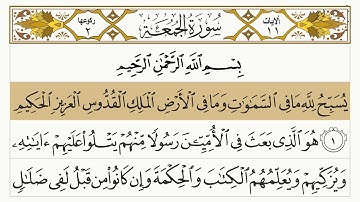 الآيات ١١
سُورَةُ الْجُمُعَةِ
ركوعها ٢
بِسْمِ اللَّهِ الرَّحْمَٰنِ الرَّحِيمِ
يُسَبِّحُ لِلَّهِ مَا فِي السَّمَٰوَٰتِ وَمَا فِي الْأَرْضِ الْمَلِكِ الْقُدُّوسِ الْعَزِيزِ الْحَكِيمِ
١ هُوَ الَّذِي بَعَثَ فِي الْأُمِّيِّۦنَ رَسُولًا مِّنْهُمْ يَتْلُوا۟ عَلَيْهِمْ ءَايَٰتِهِۦ
وَيُزَكِّيهِمْ وَيُعَلِّمُهُمُ الْكِتَٰبَ وَالْحِكْمَةَ وَإِن كَانُوا۟ مِن قَبْلُ لَفِي ضَلَٰلٍ